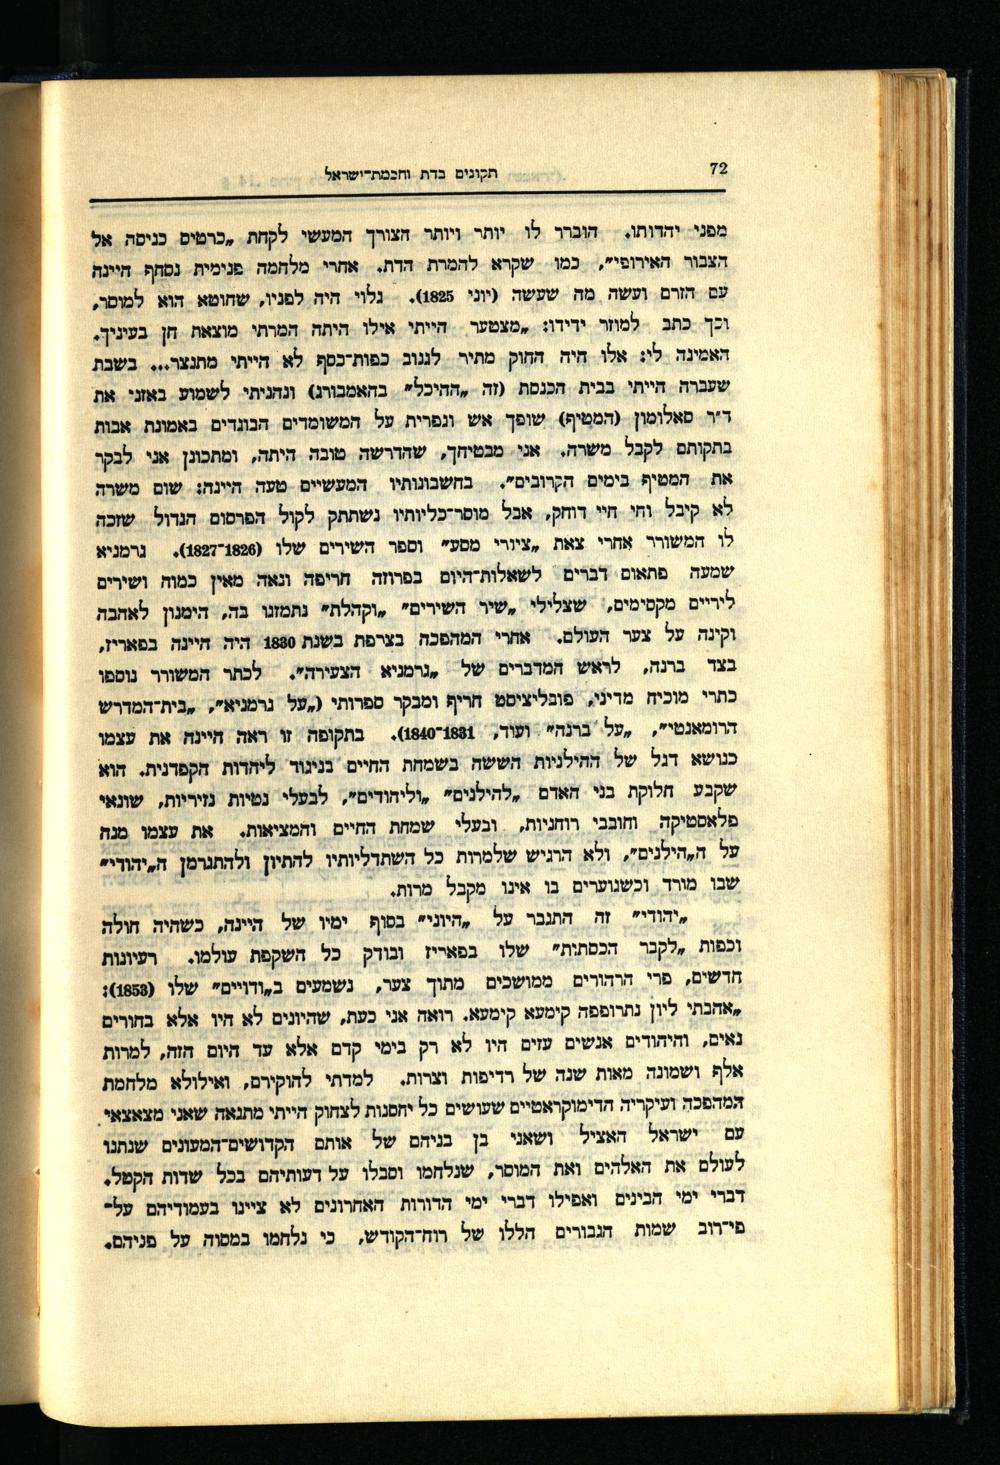 72
תקונים בדת וחכמת־ישראל
מפני יהדותו. הוברר לו יותר ויותר הצורך המעשי לקחת „כרטיס כניסה אל
הצבור האירופי", כמו שקרא להמרת הדת. אחרי מלחמה פנימית נסחף היינה
עם הזרם ועשה מה שעשה (יוני 1825). גלוי היה לפניו, שחוטא הוא למוסר,
וכך כתב למוזר ידידו: „מצטער הייתי אילו היתה המרתי מוצאת חן בעיניך.
האמינה לי: אלו היה החוק מתיר לגנוב כפות־כסף לא הייתי מתנצר... בשבת
שעברה הייתי בבית הכנסת (זה „ההיכל" בהאמבורג) ונהניתי לשמוע באזני את
ד"ר סאלומון (המטיף) שופך אש וגפרית על המשומדים הבוגדים באמונת אבות
בתקותם לקבל משרה. אני מבטיחך, שהדרשה טובה היתה, ומתכונן אני לבקר
את המטיף בימים הקרובים". בחשבונותיו המעשיים טעה היינה: שום משרה
לא קיבל וחי חיי דוחק, אבל מוסר־כליותיו נשתתק לקול הפרסום הגדול שזכה
לו המשורר אחרי צאת „ציורי מסע" וספר השירים שלו (1826־1827). גרמניא
שמעה פתאום דברים לשאלות־היום בפרוזה חריפה ונאה מאין כמוה ושירים
ליריים מקסימים, שצלילי „שיר השירים" „וקהלת" נתמזגו בה, הימנון לאהבה
וקינה על צער העולם. אחרי המהפכה בצרפת בשנת 1830 היה היינה בפאריז,
בצד ברנה, לראש המדברים של „גרמניא הצעירה". לכתר המשורר נוספו
כתרי מוכיח מדיני, פובליציסט חריף ומבקר ספרותי („על גרמניא", „בית־המדרש
הרומאנטי", „על ברנה" ועוד, 1831־1840). בתקופה זו ראה היינה את עצמו
כנושא דגל של ההילניות הששה בשמחת החיים בניגוד ליהדות הקפדנית. הוא
שקבע חלוקת בני האדם „להילנים" „וליהודים", לבעלי נטיות נזיריות, שונאי
פלאסטיקה וחובבי רוחניות, ובעלי שמחת החיים והמציאות. את עצמו מנה
על ה„הילנים", ולא הרגיש שלמרות כל השתדליותיו להתיון ולהתגרמן ה„יהודי"
שבו מורד וכשגוערים בו אינו מקבל מרות.
„יהודי" זה התגבר על „היוני" בסוף ימיו של היינה, כשהיה חולה
וכפות „לקבר הכסתות" שלו בפאריז ובודק כל השקפת עולמו. רעיונות
חדשים, פרי הרהורים ממושכים מתוך צער, נשמעים ב„ודויים" שלו (1853):
„אהבתי ליון נתרופפה קימעא קימעא. רואה אני כעת, שהיונים לא היו אלא בחורים
נאים, והיהודים אנשים עזים היו לא רק בימי קדם אלא עד היום הזה, למרות
אלף ושמונה מאות שנה של רדיפות וצרות. למדתי להוקירם, ואילולא מלחמת
המהפכה ועיקריה הדימוקראטיים שעושים כל יחסנות לצחוק הייתי מתגאה שאני מצאצאי
עם ישראל האציל ושאני בן בניהם של אותם הקדושים־המעונים שנתנו
לעולם את האלהים ואת המוסר, שנלחמו וסבלו על דעותיהם בכל שדות הקטל.
דברי ימי הבינים ואפילו דברי ימי הדורות האחרונים לא ציינו בעמודיהם על־
פי־רוב שמות הגבורים הללו של רוח־הקודש, כי נלחמו במסוה על פניהם.